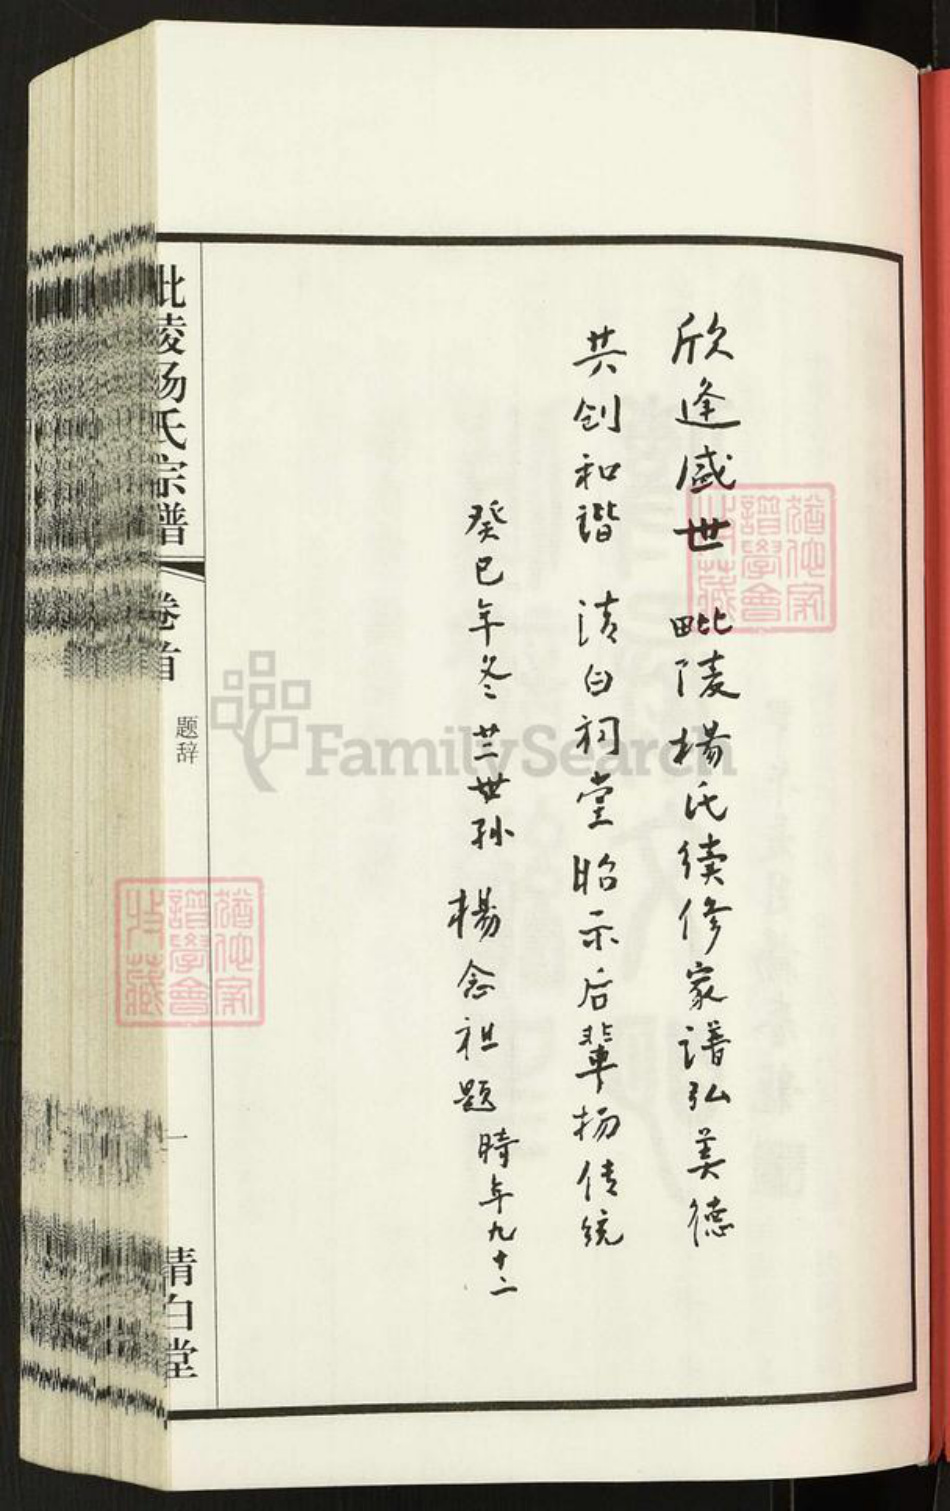 欣逢盛世 毗陵楊氏续修家譜弘美德
共创和谐 清白祠堂昭示后輩扬传统
癸巳年冬 卅世孙 楊念祖題 時年九十二
毗陵杨氏宗谱
卷首
题辞
一
清白堂
FamilySearch